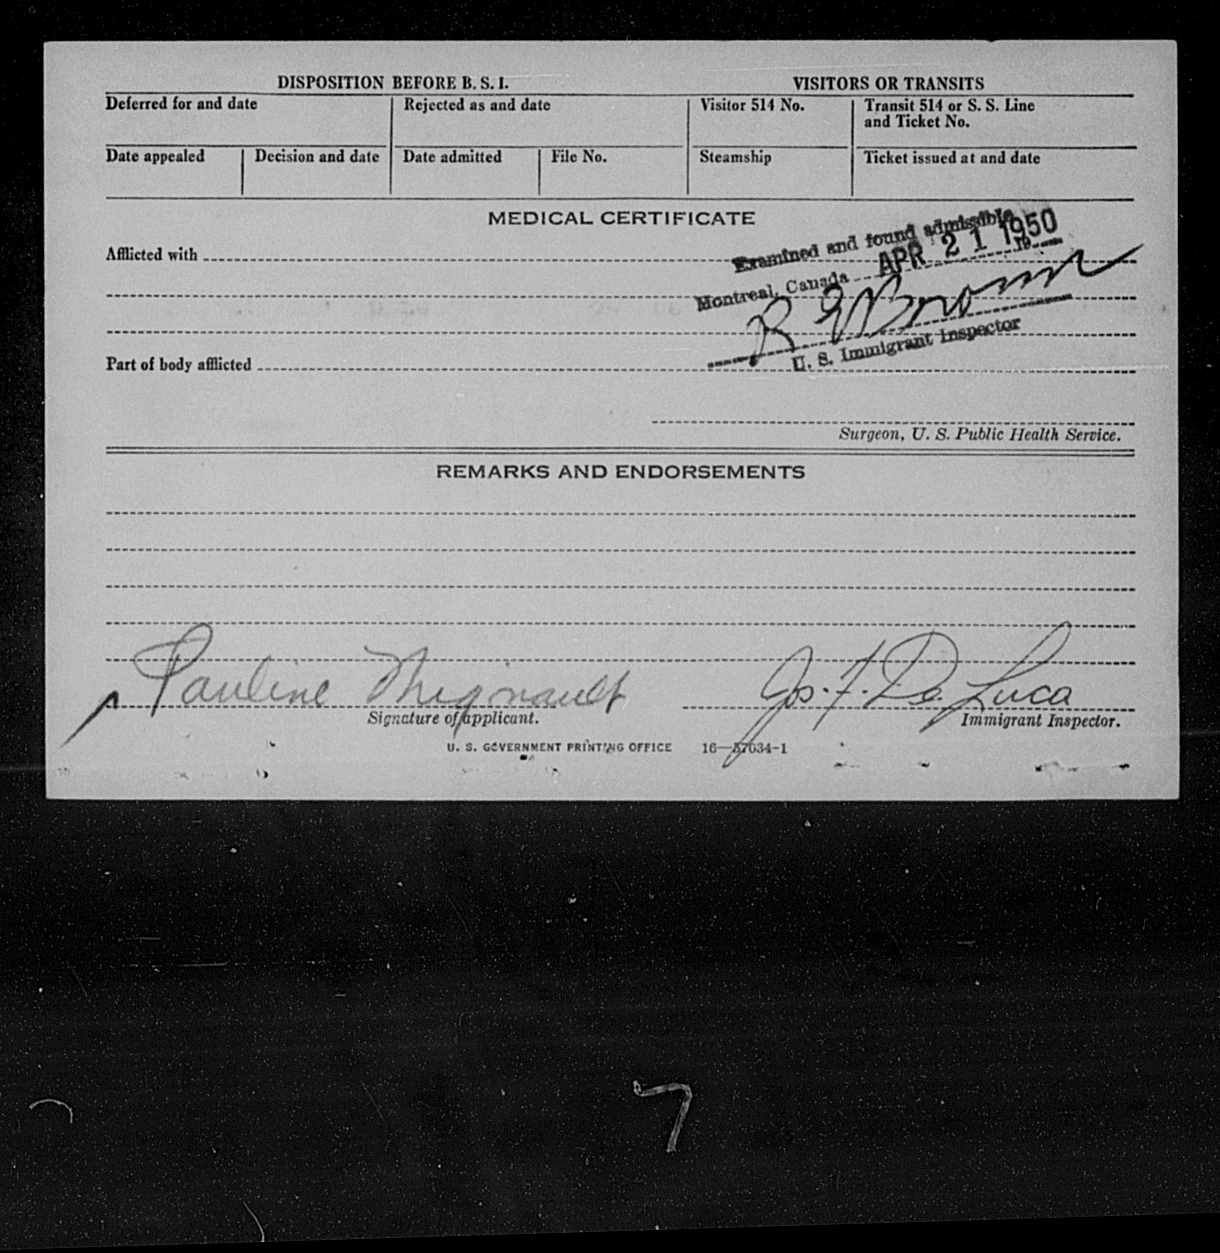 DISPOSITION BEFORE B. S. I. VISITORS OR TRANSITS
Deferred for and date Rejected as and date Visitor 514 No. Transit 514 or S. S. Line
and Ticket No.
Date appealed Decision and date Date admitted File No. Steamship Ticket issued at and date
MEDICAL CERTIFICATE
Examined and found admissible
Afflicted with
APR 21 1950
19
Montreal, Canada
R E Brown
U. S. Immigrant Inspector
Part of body afflicted
Surgeon, U. S. Public Health Service.
REMARKS AND ENDORSEMENTS
Pauline Mignault Jos. F. De Luca
Signature of applicant. Immigrant Inspector.
U. S. GOVERNMENT PRINTING OFFICE 16—57034-1
7